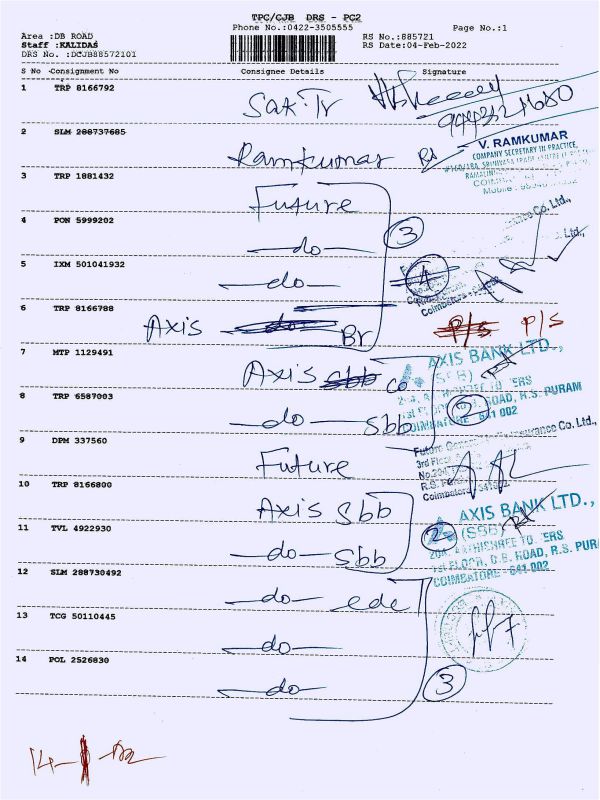 TPC/CJB DRS - PC2
Phone No.:0422-3505555
Page No.:1
Area :DB ROAD
RS No.:885721
Staff :KALIDAS
RS Date:04-Feb-2022
DRS No. :DCJB88572101
S No Consignment No Consignee Details Signature
1 TRP 8166792
2 SLM 288737685
Ramkumar
V. RAMKUMAR
COMPANY SECRETARY IN PRACTICE,
3 TRP 1881432
Future
4 PON 5999202
do
3
5 IXM 501041932
do
4
6 TRP 8166788
Axis do Br
P/S P/S
7 MTP 1129491
Axis sbb Co
AXIS BANK LTD.,
(SBB)
8 TRP 6587003
do sbb
2
1st FLOOR, D.B. ROAD, R.S. PURAM
COIMBATORE - 641 002
9 DPM 337560
Future
10 TRP 8166800
Axis Sbb
AXIS BANK LTD.,
(SBB)
11 TVL 4922930
do sbb
2
1st FLOOR, D.B. ROAD, R.S. PURA
COIMBATORE - 641 002
12 SLM 288730492
do ede
13 TCG 50110445
do
14 POL 2526830
do
3